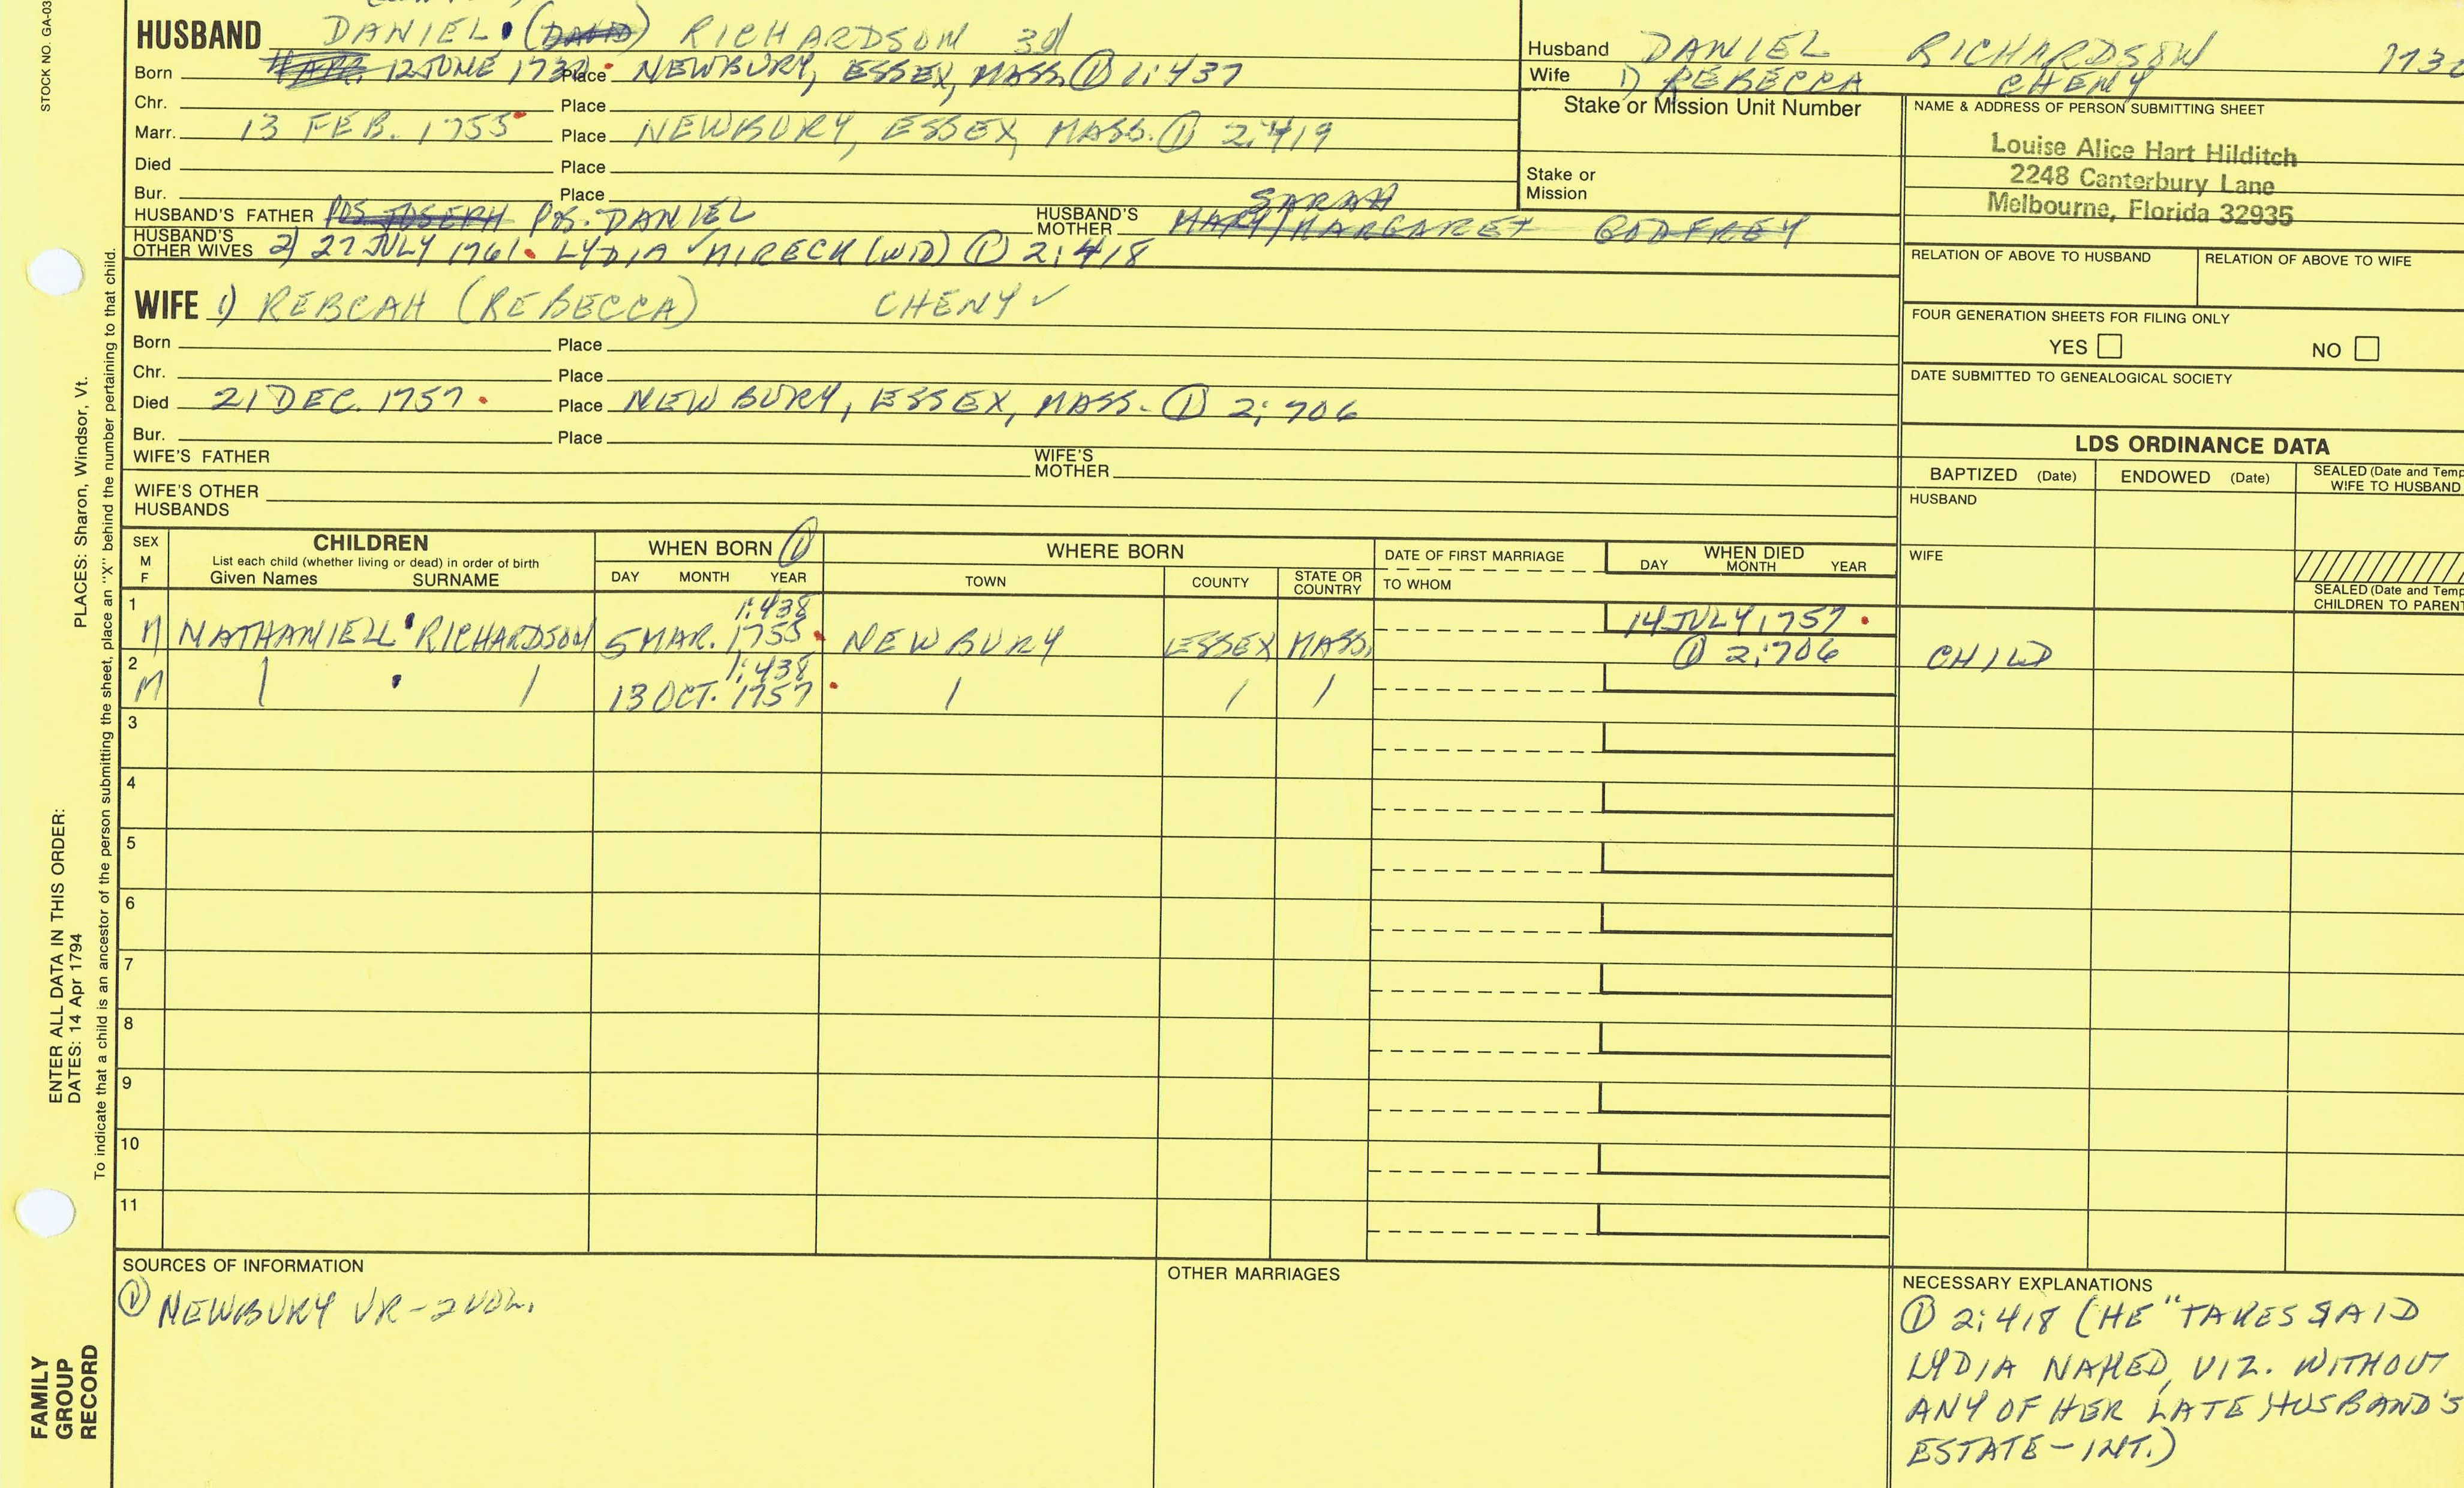 STOCK NO. GA-03
HUSBAND DANIEL (DAVID) RICHARDSON 3d
Born 12 JUNE 173 Place NEWBURY, ESSEX, MASS. ① 1:437
Chr. Place
Marr. 13 FEB. 1755 Place NEWBURY, ESSEX, MASS. ① 2:419
Died Place
Bur. Place
HUSBAND'S FATHER POS JOSEPH POS. DANIEL HUSBAND'S MOTHER SARAH MARY/MARGARET GODFREY
HUSBAND'S OTHER WIVES 2) 27 JULY 1761 LYDIA ✓ MIRECK (WID) ① 2:418
Husband DANIEL RICHARDSON 173
Wife 1) REBECCA CHENY
Stake or Mission Unit Number
Stake or
Mission
NAME & ADDRESS OF PERSON SUBMITTING SHEET
Louise Alice Hart Hilditch
2248 Canterbury Lane
Melbourne, Florida 32935
RELATION OF ABOVE TO HUSBAND RELATION OF ABOVE TO WIFE
FOUR GENERATION SHEETS FOR FILING ONLY
YES NO
DATE SUBMITTED TO GENEALOGICAL SOCIETY
WIFE 1) REBCAH (REBECCA) CHENY ✓
Born Place
Chr. Place
Died 21 DEC. 1757 Place NEWBURY, ESSEX, MASS. ① 2:706
Bur. Place
WIFE'S FATHER WIFE'S MOTHER
WIFE'S OTHER
HUSBANDS
LDS ORDINANCE DATA
BAPTIZED (Date) ENDOWED (Date) SEALED (Date and Temp
WIFE TO HUSBAND
HUSBAND
WIFE
SEALED (Date and Temp
CHILDREN TO PARENT
SEX
M
F
CHILDREN
List each child (whether living or dead) in order of birth
Given Names SURNAME
WHEN BORN ①
DAY MONTH YEAR
WHERE BORN
TOWN COUNTY STATE OR COUNTRY
DATE OF FIRST MARRIAGE
TO WHOM
WHEN DIED
DAY MONTH YEAR
1 1:438
M NATHANIELL RICHARDSON 5 MAR. 1755 NEWBURY ESSEX MASS. 14 JULY 1757
① 2:706 CHILD
2 1:438
M / / 13 OCT. 1757 / / /
3
4
5
6
7
8
9
10
11
SOURCES OF INFORMATION
① NEWBURY VR-2 VOL.
OTHER MARRIAGES
NECESSARY EXPLANATIONS
① 2:418 (HE "TAKES SAID
LYDIA NAKED, VIZ. WITHOUT
ANY OF HER LATE HUSBAND'S
ESTATE - INT.)
PLACES: Sharon, Windsor, Vt.
ENTER ALL DATA IN THIS ORDER:
DATES: 14 Apr 1794
To indicate that a child is an ancestor of the person submitting the sheet, place an "X" behind the number pertaining to that child.
FAMILY
GROUP
RECORD